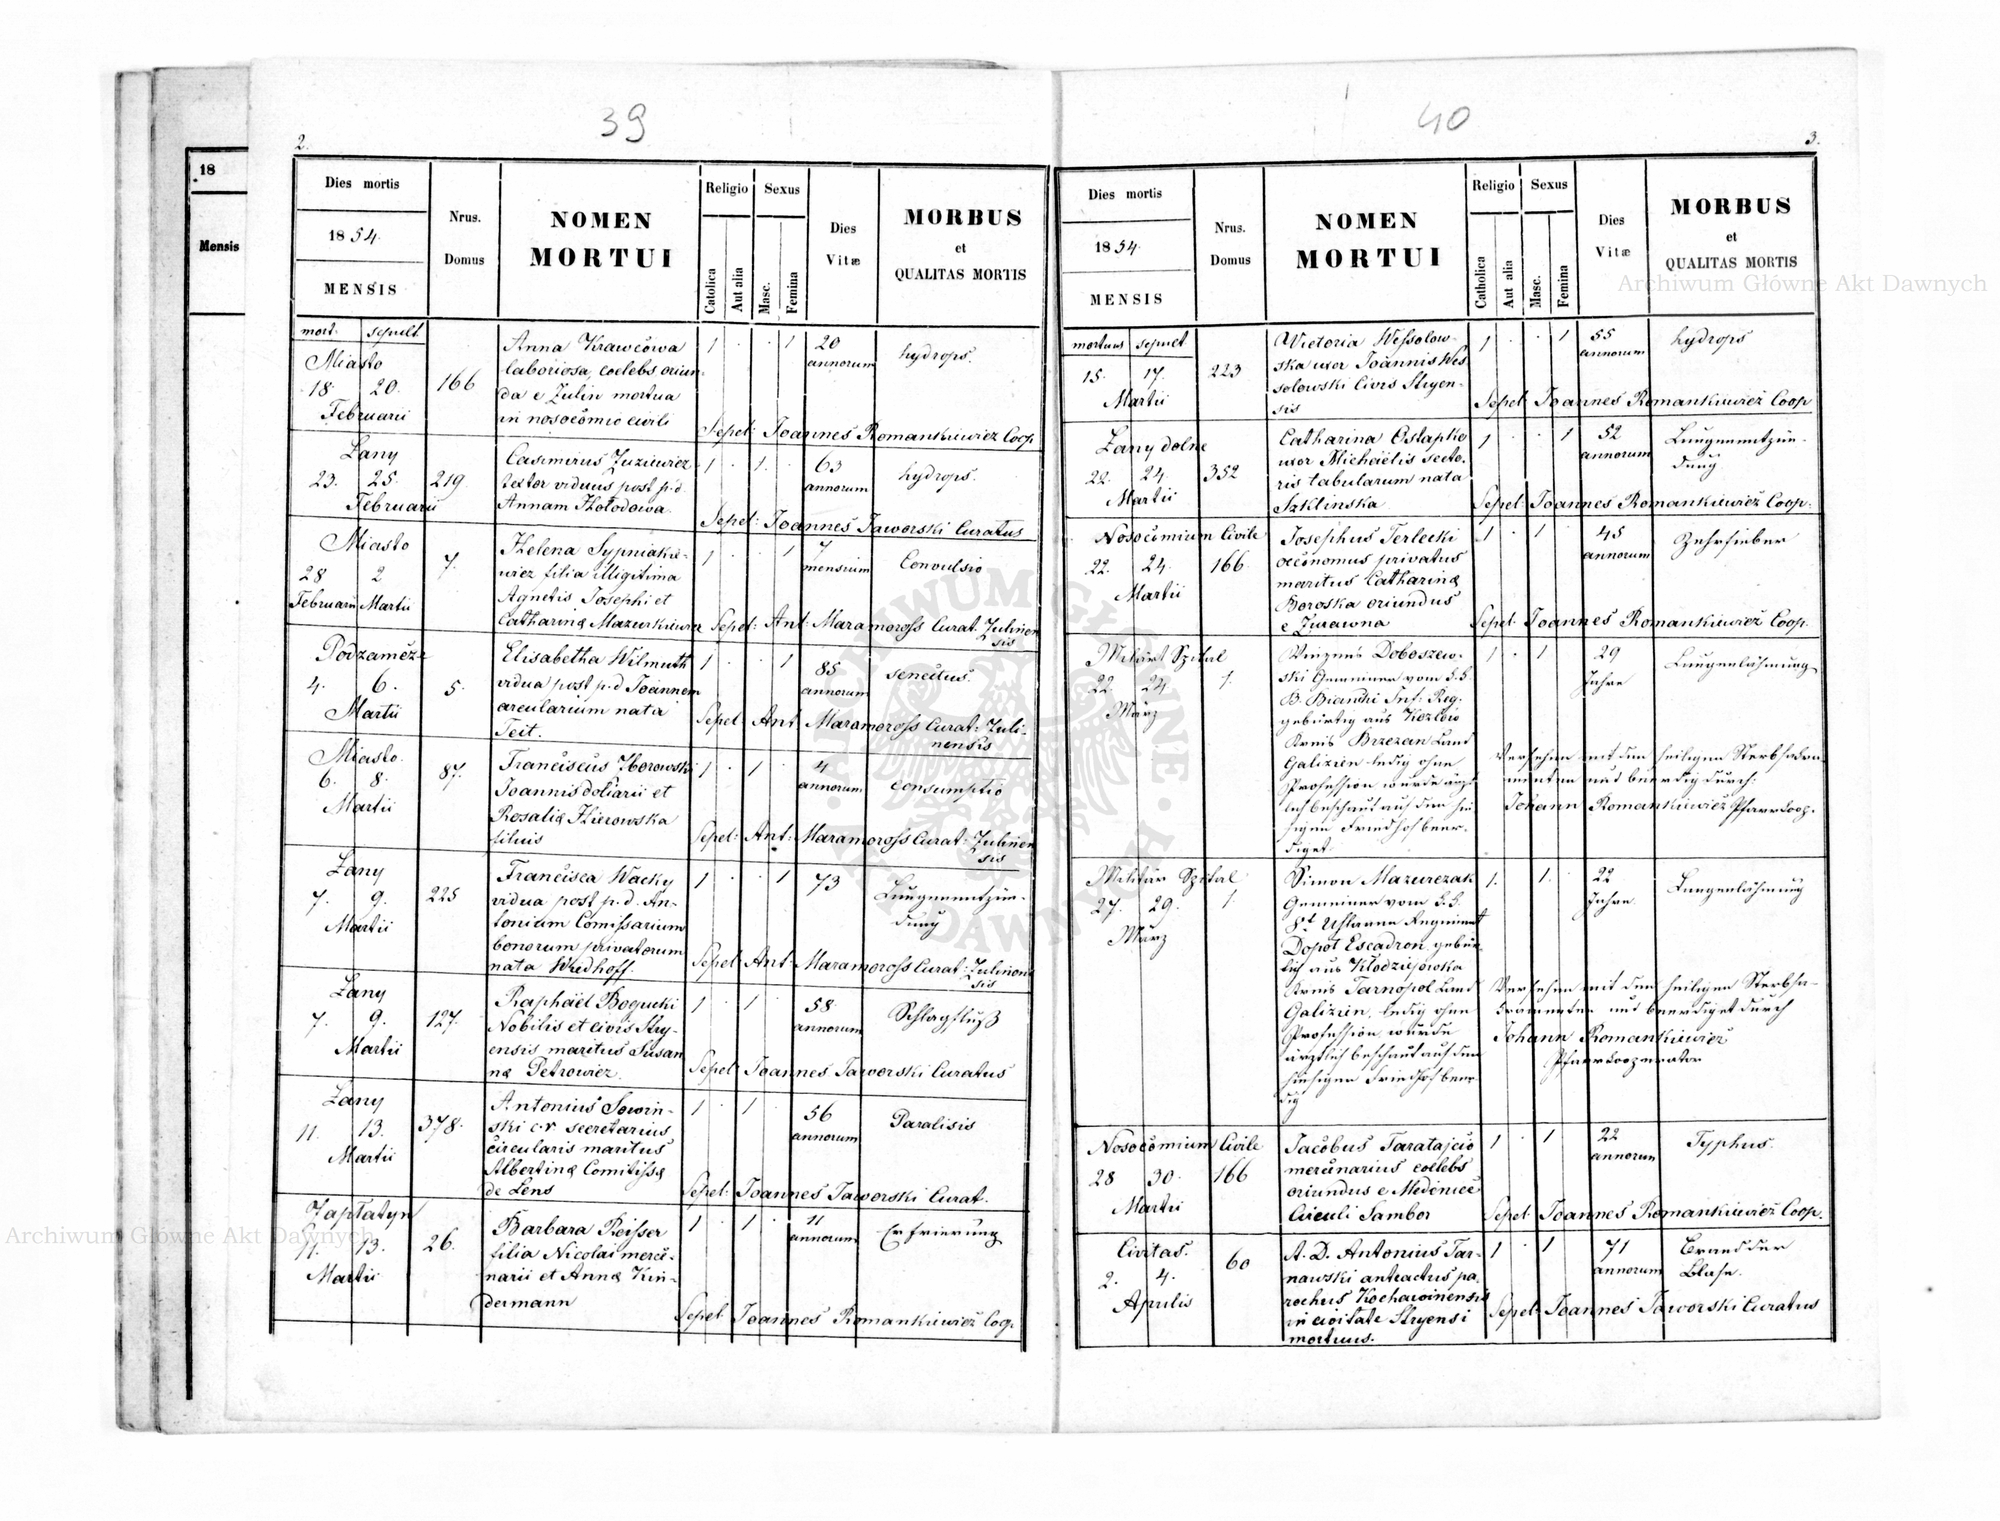 39
2.
18
Mensis
Dies mortis
1854.
MENSIS
Nrus.
Domus
NOMEN
MORTUI
Religio
Sexus
Catolica
Aut alia
Masc.
Femina
Dies
Vitæ
MORBUS
et
QUALITAS MORTIS
mort. sepult
Miasto
18. 20.
Februarii
166
Anna Krawcowa
laboriosa, coelebs oriun-
da e Zulin mortua
in nosocomio civili
1 . . 1
20
annorum
hydrops.
Sepel: Joannes Romankiewicz Coop
Łany
23. 25.
Februarii
219.
Casimirus Juziewicz
textor viduus post p.d.
Annam
1 . 1 .
63
annorum
hydrops.
Sepel: Joannes Jaworski Curatus
Miasto
28 2
Februarii Martii
7.
Helena Sypniakie-
wicz filia illigitima
Agnetis Josephi et
Catharinæ Mazurkiewicz
1 . . 1
7
mensium
Convulsio
Sepel: Ant: Maramoross Curat: Zulinen
sis
Podzamcze
4. 6.
Martii
5.
Elisabetha Wilmuth
vidua post p.d Joannem
arcularium nata
Teit.
1 . . 1
85
annorum
senectus.
Sepel: Ant: Maramoross Curat: Zuli-
nensis
Miasto.
6. 8.
Martii
87.
Franciscus
Joannis doliarii et
Rosaliæ
filius
1 . 1 .
4
annorum
Consumptio
Sepel: Ant: Maramoross Curat: Zulinen
sis
Łany
7. 9.
Martii
225
Francisca Wacky
vidua post p.d. An-
tonium Comissarium
bonorum privatorum
nata Wredhoff.
1 . . 1
73
Lungenentzün-
dung
Sepel: Ant: Maramoross Curat: Zulinen
sis
Łany
7. 9.
Martii
127.
Raphäel Bogucki
Nobilis et civis Stry-
ensis maritus Susan
næ Petrowicz.
1 . 1 .
58
annorum
Schlagfluß
Sepel: Joannes Jaworski Curatus
Łany
11. 13.
Martii
378.
Antonius Sowin-
ski c.r secretarius
circularis maritus
Albertinæ Comitissæ
de Lens
1 . 1 .
56
annorum
Paralisis
Sepel: Joannes Jaworski Curat.
Zaptatyn
11. 13.
Martii
26.
Barbara Reisser
filia Nicolai merce-
narii et Annæ Kin-
dermann
1 . 1 .
11
annorum
Erfrierung
Sepel: Joannes Romankiewicz Coop
40
3.
Dies mortis
1854.
MENSIS
Nrus.
Domus
NOMEN
MORTUI
Religio
Sexus
Catholica
Aut alia
Masc.
Femina
Dies
Vitæ
MORBUS
et
QUALITAS MORTIS
mortuus sepult
15. 17.
Martii
223
Wictoria Wessolow-
ska uxor Joannis Wes
solowski Civis Stryen-
sis
1 . . 1
55
annorum
hydrops
Sepel: Joannes Romankiewicz Coop
Łany dolne
22. 24
Martii
352
Catharina Ostapko
uxor Michaelis secto-
ris tabularum nata
Szklinska
1 . . 1
52
annorum
Lungenentzün-
dung
Sepel: Joannes Romankiewicz Coop.
Nosocomium Civile
22. 24.
Martii
166.
Josephus Terlecki
oeconomus privatus
maritus Catharinæ
Boroska oriundus
e Zurawna
1 . 1
45
annorum
Zehrfieber
Sepel: Joannes Romankiewicz Coop.
Militär Spital
22. 24.
März
1.
Vinzens Doboszew-
ski Gemeiner vom k.k.
B. Bianchi Inf: Reg.
gebürtig aus Kozlow
Kreis Brzezan Land
Galizien ledig ohne
Profession wurde ärzt-
lich beschaut auf den hie-
sigen Friedhof beer-
diget
1 . 1
29
Jahre
Lungenlähmung
Versehen mit den heiligen Sterbsakra-
menten und beerdigt durch:
Johann Romankiewicz Pfarrkoop.
Militär Spital
27. 29.
März
1.
Simon Mazurczak
Gemeiner vom k.k.
8t Uhlanen Regiment
Depot Escadron gebür-
tig aus Kłodziejowka
Kreis Tarnopol Land
Galizien, ledig ohne
Profession, wurde
ärztlich beschaut auf dem
hiesigen Friedhof beer-
dig
1. 1.
22
Jahre
Lungenlähmung
Versehen mit den heiligen Sterbsa-
kramenten und beerdiget durch
Johann Romankiewicz
Pfarrkooperator
Nosocomium Civile
28 30.
Martii
166
Jacobus Taratajcio
mercenarius coelebs
oriundus e Medenice
Circuli Sambor
1 . 1
22
annorum
Typhus.
Sepel: Joannes Romankiewicz Coop.
Civitas.
2. 4.
Aprilis
60
A. D. Antonius Tar-
nawski anteactus pa-
rochus Kochawinensis
in civitate Stryensi
mortuus.
1 . 1
71
annorum
Brand der
Blase.
Sepel: Joannes Jaworski Curatus
Archiwum Główne Akt Dawnych
Archiwum Główne Akt Dawnych
ARCHIWUM GŁÓWNE AKT DAWNYCH